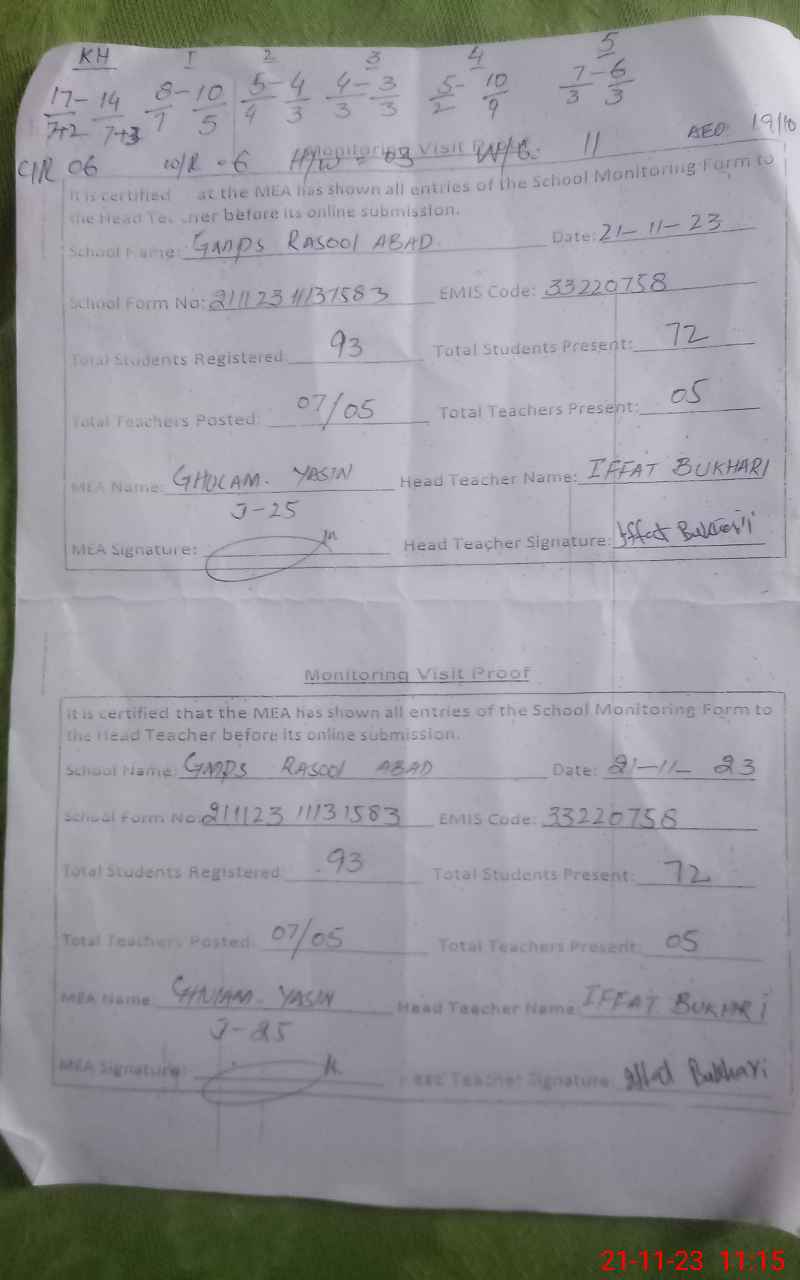 KH 1 2 3 4 5
17- 14 8-10 5-4 4-3 5- 10 7-6
7+2 7+3 7 5 4 3 3 3 2 9 3 3
AEO: 19/10
C/R 06 W/R -6 H/W = 03 W/G: 11
Monitoring Visit
It is certified at the MEA has shown all entries of the School Monitoring Form to
the Head Teacher before its online submission.
School Name: GMPS RASOOL ABAD Date: 21-11-23
School Form No: 211123 11131583 EMIS Code: 33220758
Total Students Registered: 93 Total Students Present: 72
Total Teachers Posted: 07/05 Total Teachers Present: 05
MEA Name: GHULAM. YASIN Head Teacher Name: IFFAT BUKHARI
J-25
MEA Signature: Head Teacher Signature: Iffat Bukhari
Monitoring Visit Proof
It is certified that the MEA has shown all entries of the School Monitoring Form to
the Head Teacher before its online submission.
School Name: GMPS RASOOL ABAD Date: 21-11-23
School Form No: 211123 11131583 EMIS Code: 33220758
Total Students Registered: 93 Total Students Present: 72
Total Teachers Posted: 07/05 Total Teachers Present: 05
MEA Name: GHULAM. YASIN Head Teacher Name: IFFAT BUKHARI
J-25
MEA Signature: Head Teacher Signature: Iffat Bukhari
21-11-23 11:15